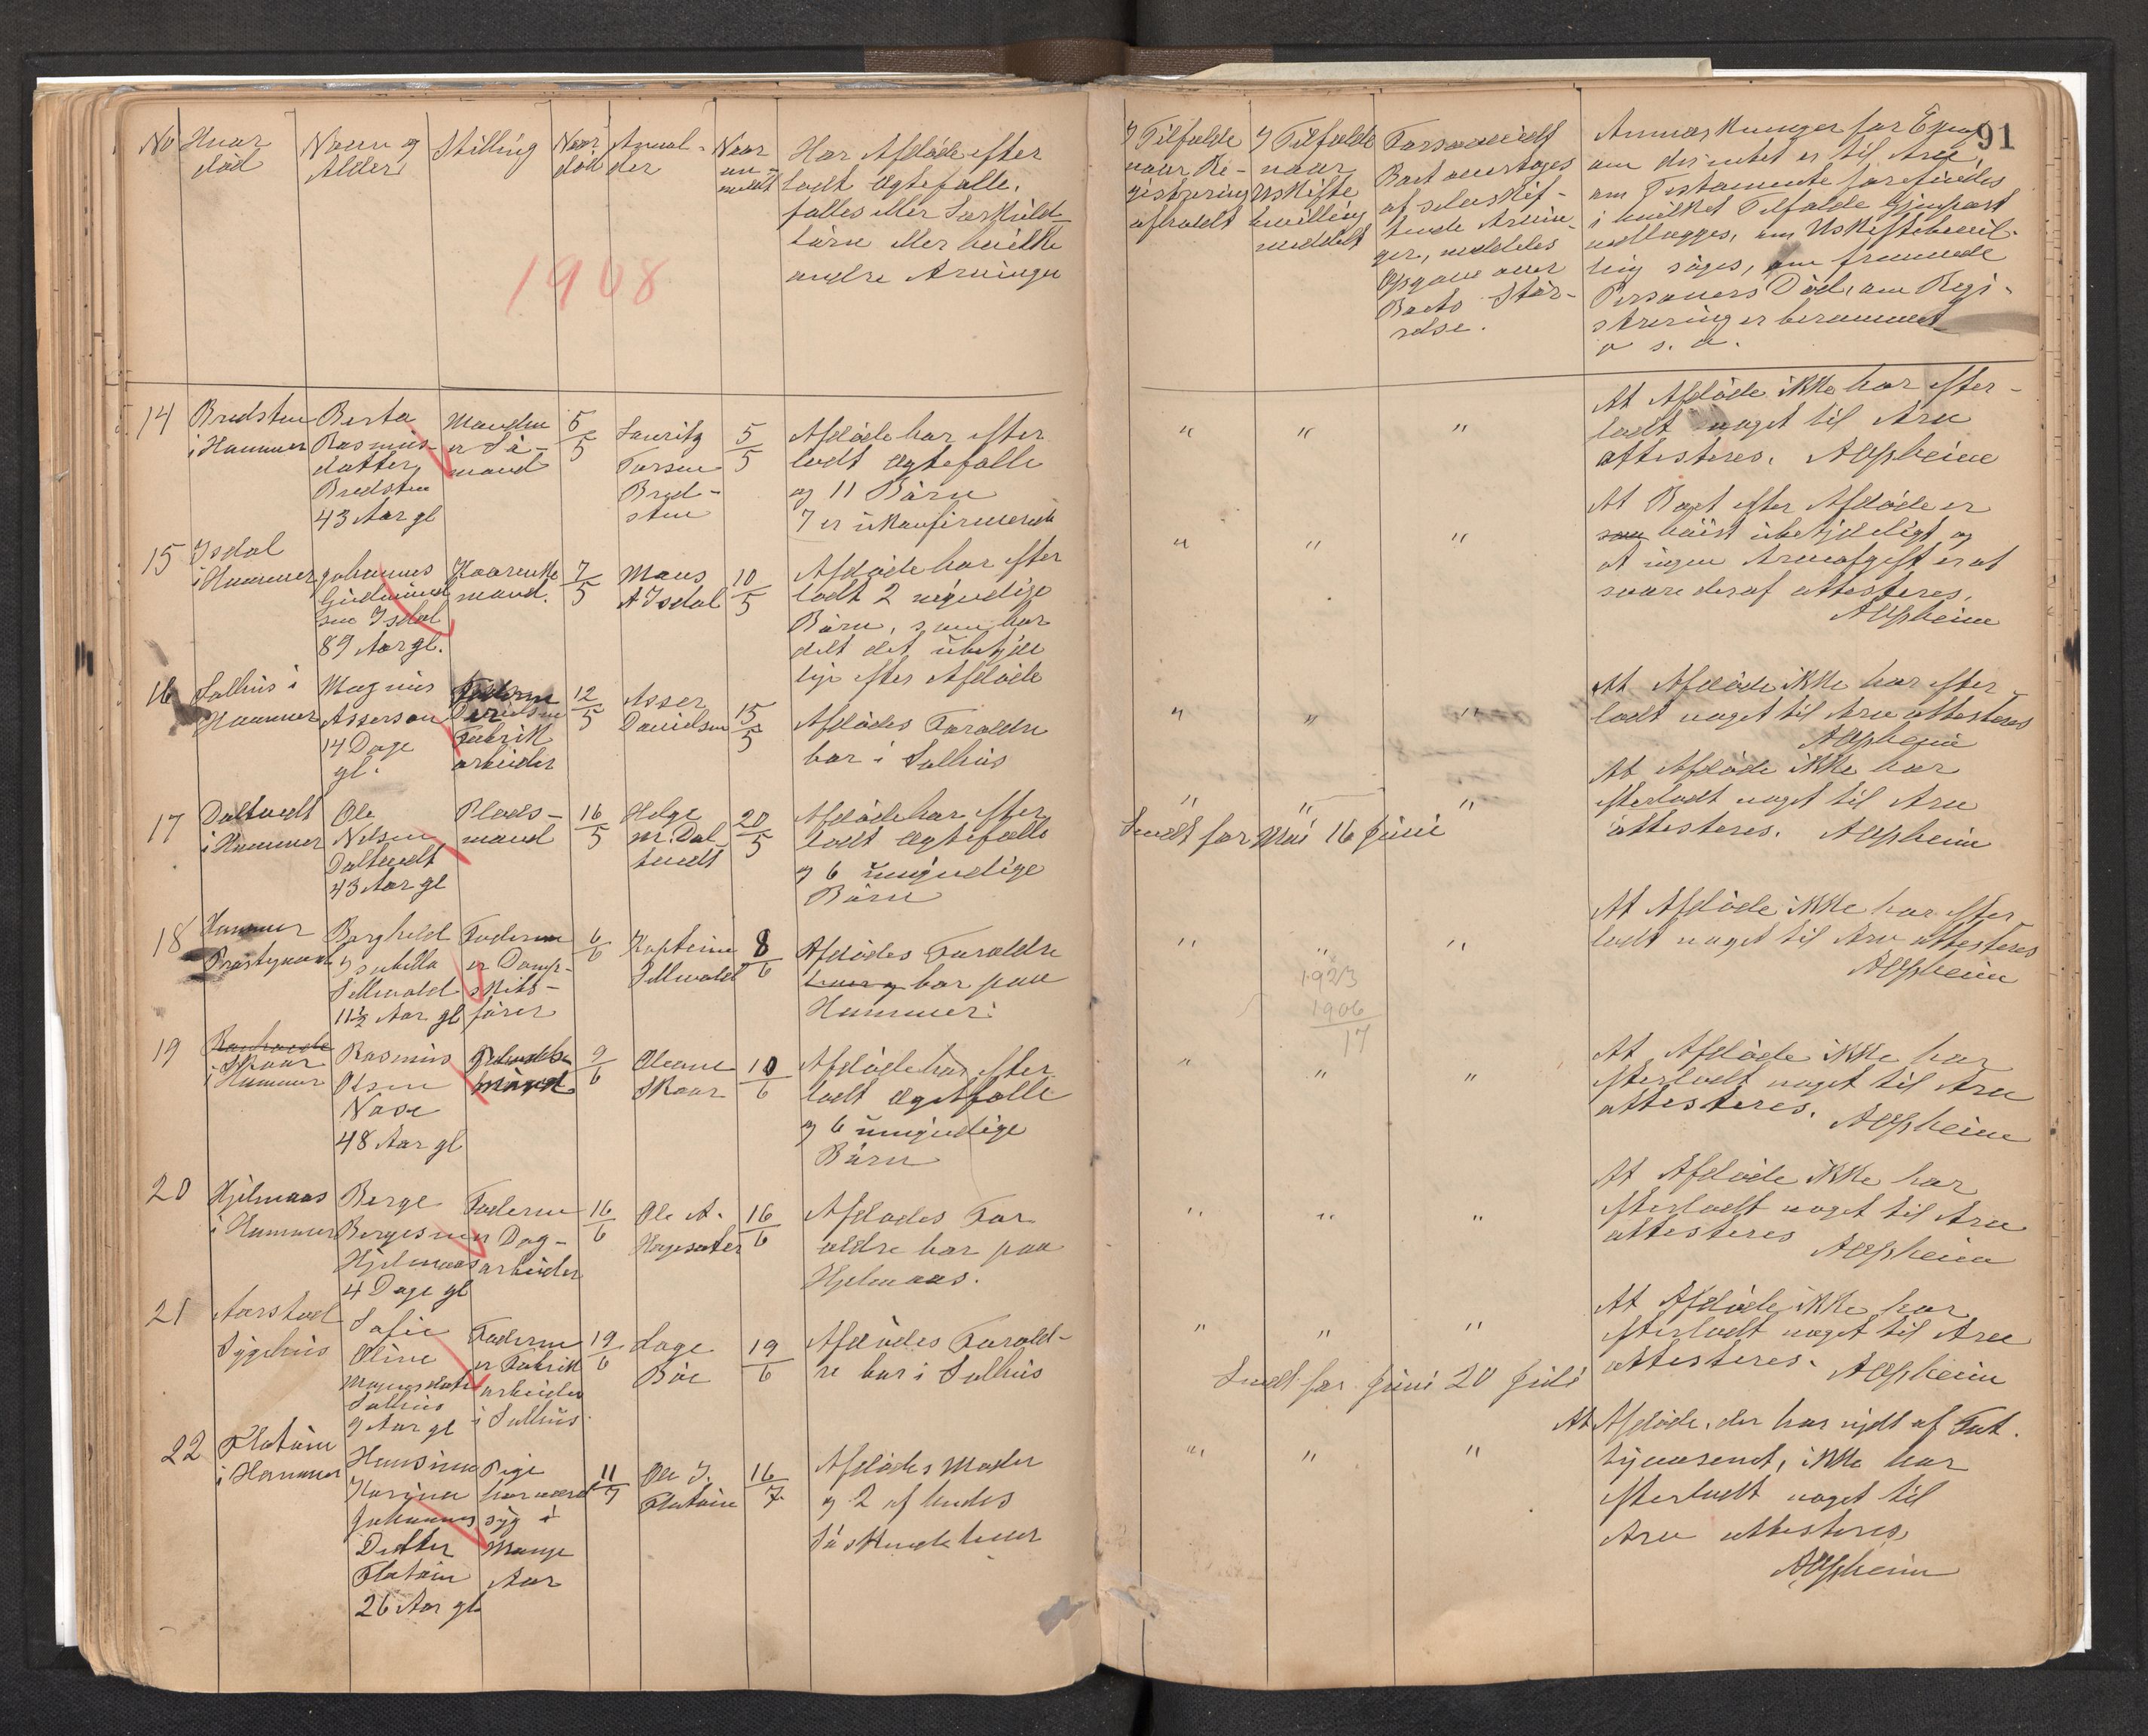 91
No
Hvor
död
Navn og
Alder
Stilling
Naar
död
Anmel-
der
Naar
an-
meldt
Har Afdöde efter
ladt Ægtefælle,
fælles eller Særkuld
börn eller hvilke
andre Arvinger
I Tilfælde
naar Re-
gistrering
afholdt
I Tilfælde
naar
Uskifte
bevilling
meddelt
Forsaavidt
Boet overtages
af selvskif-
tende Arvin-
ger, meddeles
Opgave over
Boets Stör-
relse.
Anmærkninger for Expl
om der intet er til Arv,
om Testamente forefindes
i hvilket Tilfælde Gjenpart
vedlægges, om Uskiftebevil-
ling söges, om fremmede
Personers Död, om Regi-
strering er berammet
o s. v.
1908
14
Bredsten
i Hammer
Berta
Rasmus-
datter
Bredsten
43 Aar gl
Manden
er Sö-
mand
5/5
Lauritz
Larsen
Bred-
sten
5/5
Afdöde har efter
ladt Ægtefælle
og 11 Börn
7 er ukonfirmerede
" " "
At Afdöde ikke har efter-
ladt noget til Arv
attesteres. AOspheim
15
Isdal
i Hammer
Johannes
Gudmund
sen Isdal
89 Aar gl.
Kaarenke
mand.
7/5
Mons
A Isdal
10/5
Afdöde har efter
ladt 2 myndige
Börn, som har
delt det ubetyde
lige efter Afdöde
" " "
At Boet efter Afdöde er
höist ubetydeligt og
at ingen Arveafgift er at
svare deraf attesteres.
AOspheim
16
Salhus i
Hammer
Magnus
Asserson
14 Dage
gl.
Faderen
Fabrik
arbeider
12/5
Asser
Danielsen
15/5
Afdödes Foraldre
bor i Salhus
" " "
At Afdöde ikke har efter
ladt noget til Arv attesteres
AOspheim
17
Daltvedt
i Hammer
Ole
Nelsen
Daltvedt
43 Aar gl
Plads-
mand
16/5
Helge
M. Dal
tvedt
20/5
Afdöde har efter
ladt Ægtefælle
og 6 umyndige
Börn
" " "
Sendt for Mai 16 Juni
At Afdöde ikke har
efterladt noget til Arv
attesteres. AOspheim
18
Hammer
Prestgaard
Borghild
Isabella
Sellevold
11½ Aar gl
Faderen
er Damp-
skibs-
förer
6/6
Kapteine
Sellevold
8/6
Afdödes Foraldre
bor paa
Hammer.
" " "
1923
1906
17
At Afdöde ikke har efter
ladt noget til Arv attesteres
AOspheim
19
Skaar
i Hammer
Rasmus
Olsen
Nase
48 Aar gl
mand
9/6
Oleane
Skaar
10/6
Afdöde har efter
ladt Ægtefælle
og 6 umyndige
Börn
" " "
At Afdöde ikke har
efterladt noget til Arv
attesteres. AOspheim
20
Hjelmaas
i Hammer
Berge
Bergesen
Hjelmaas
4 Dage gl
Faderen
er Dag-
arbeider
16/6
Ole A.
Hagesæter
16/6
Afdödes For
ældre bor paa
Hjelmaas.
" " "
At Afdöde ikke har
efterladt noget til Arv
attesteres AOspheim
21
Aarstad
Sygehus
Sofie
Oline
Magnusdatr
Salhus
9 Aar gl
Faderen
er Fabrik
arbeider
i Salhus.
19/6
Lage
Böe
19/6
Afdödes Forald-
re bor i Salhus
" " "
Sendt for Juni 20 Juli
At Afdöde ikke har
efterladt noget til Arv
attesteres. AOspheim
22
Flatöen
i Hammer
Hansine
Karina
Johannes
Datter
Flatöen
26 Aar gl
Pige
har været
syg i
Mange
Aar
11/7
Ole J.
Flatöen
16/7
Afdödes Moder
og 2 af hendes
Söskende lever
" " "
At Afdöde, der har nydt af Fat-
tigvæsenet, ikke har
efterladt noget til
Arv attesteres
AOspheim